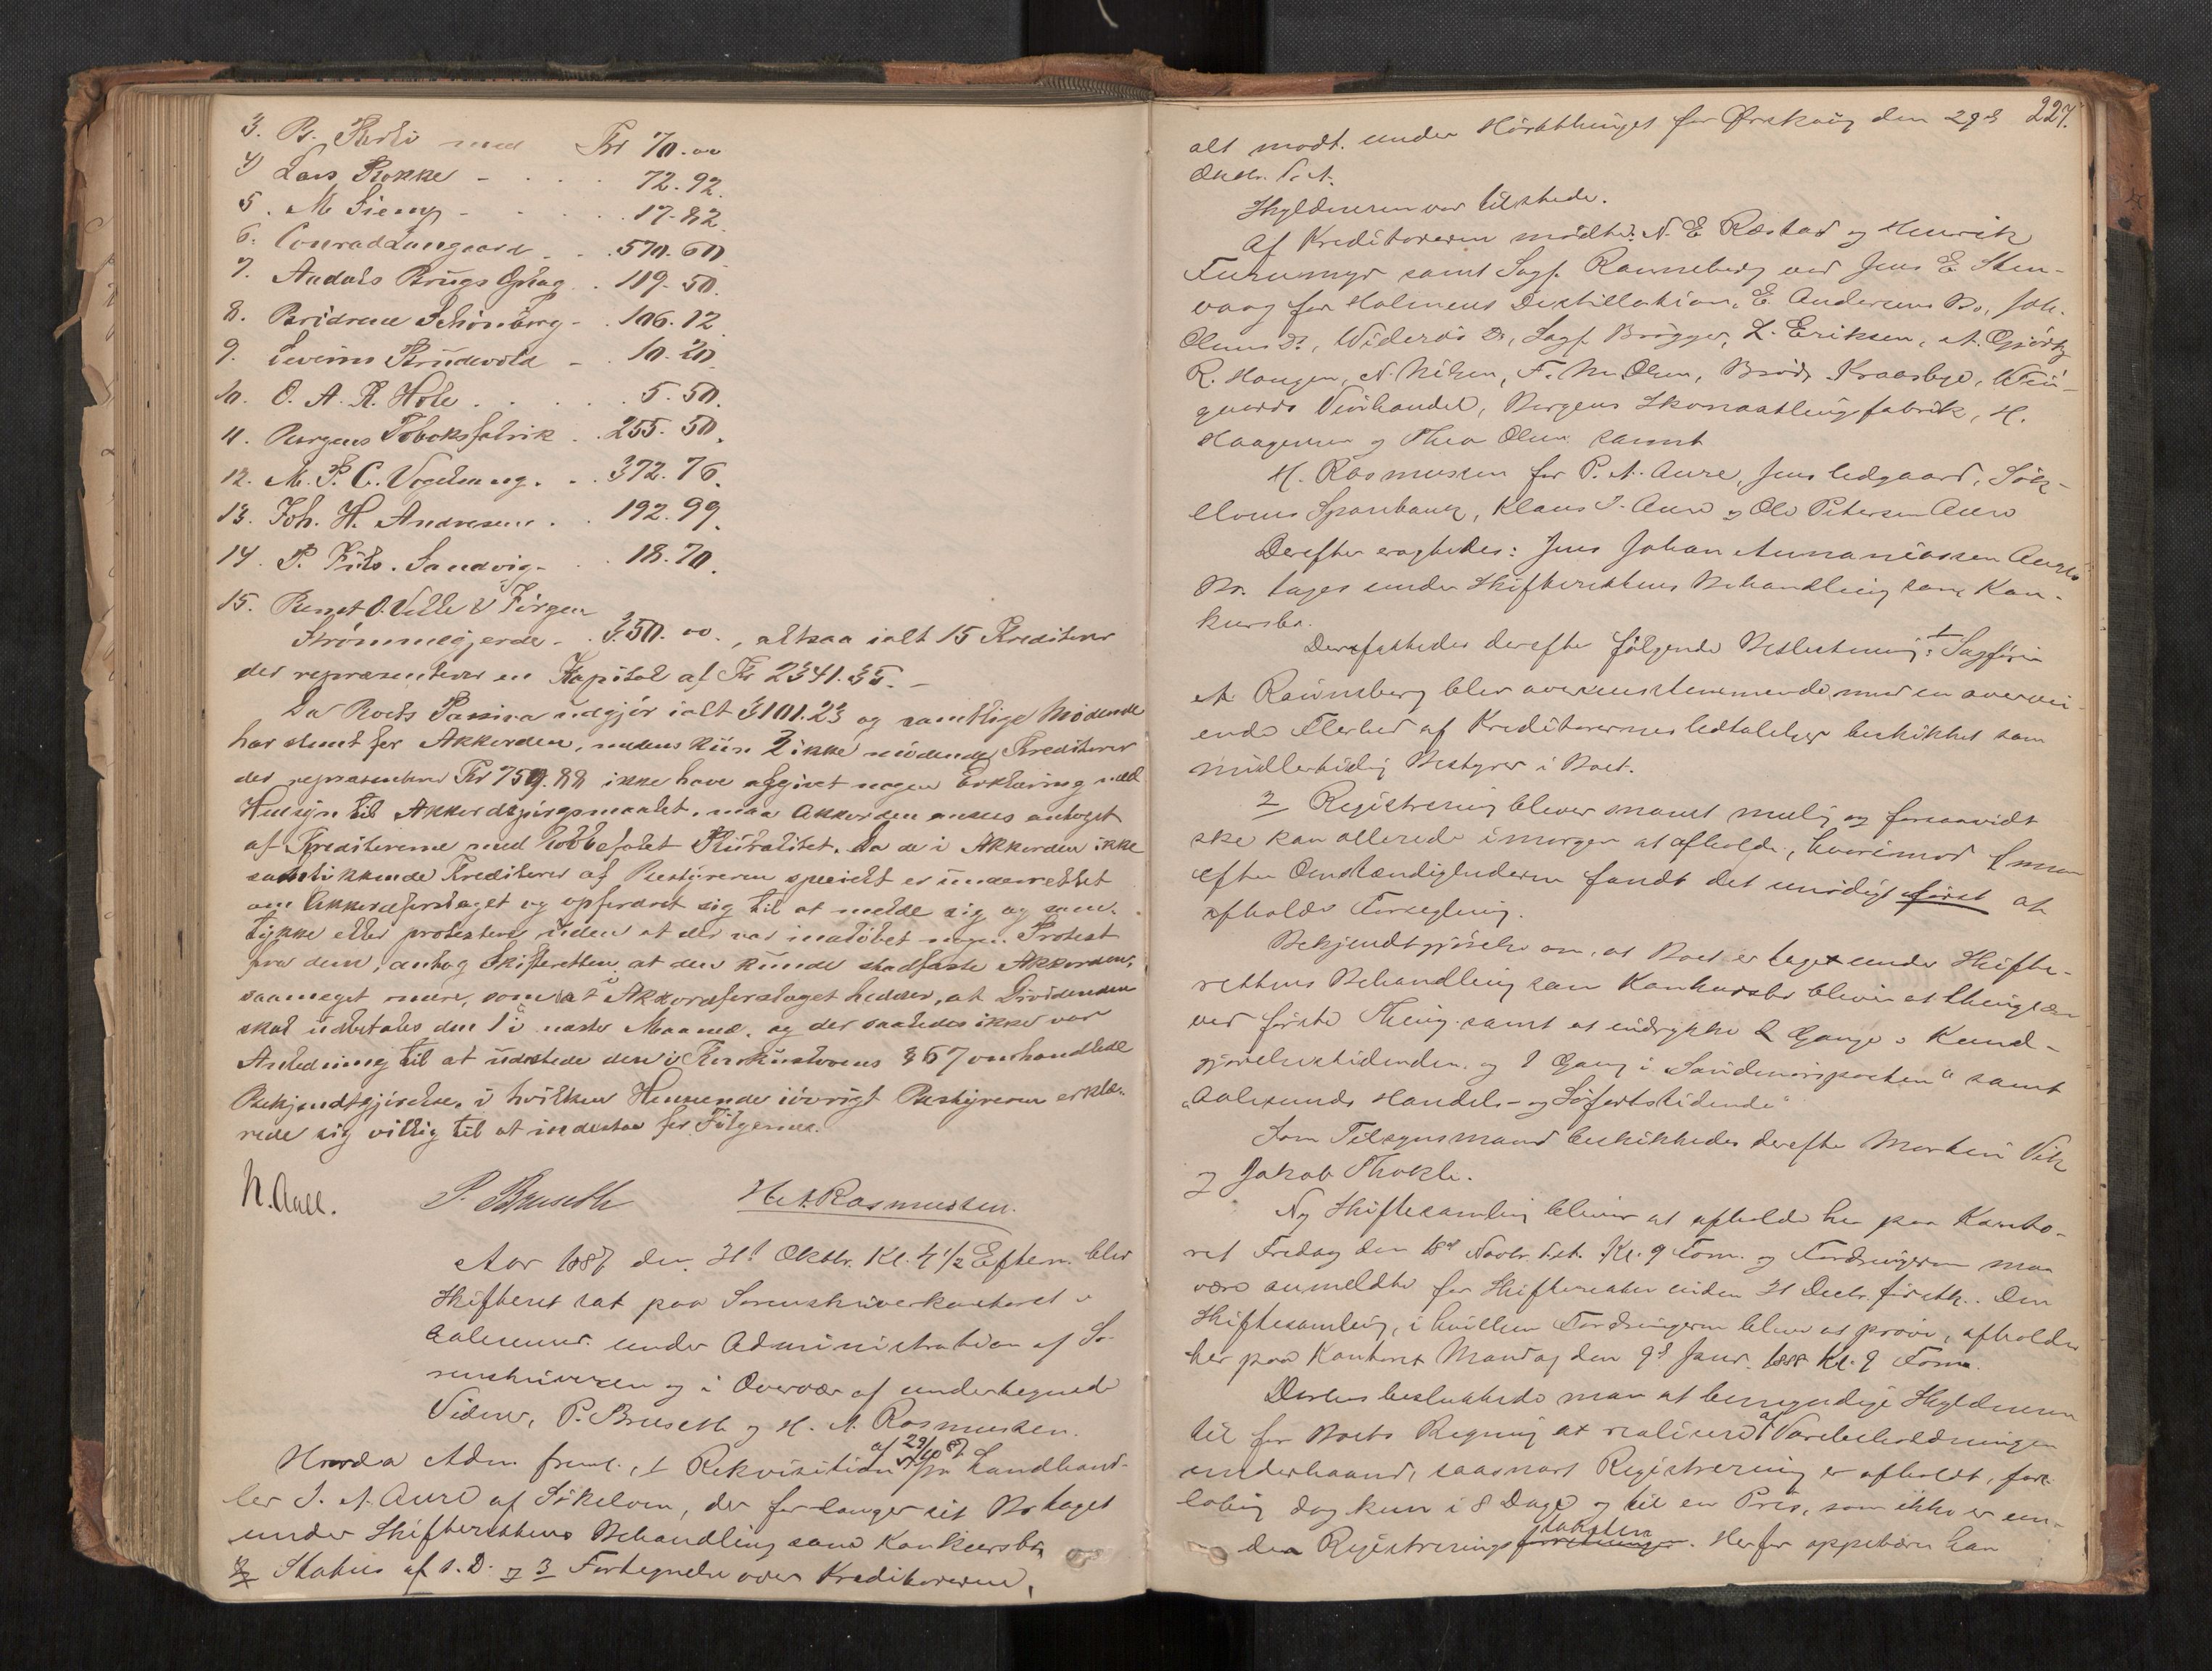 3. B. med Kr 70.00
4) Lars Rokke - . . . 72.92
5. M. . . . 17.82
6. Conrad Langaard . . 570.60
7. Aadals Brugs . 119.50.
8. Brødrene Schönberg - . 106.12
9. Severin - . 10.20
10. O. A. R. Hole . . . . 5.50.
11. Bergens Tobaksfabrik . . 255.50.
12. M. P. C. . . 372.76.
13. Joh. H. Andresen . . 192.99.
14. P. Friis. Sandvig - . . 18.70.
15. Bernt O. Velle & Jörgen
Strømmegjerde - . 350.00., altsaa ialt 15 Kreditorer
der repræsenterer en Kapital af Kr 2341.35. -
Da Boets Passiva udgjör ialt 3101.23 og samtlige Mödende
har stemt for Akkorden, medens kun 2 ikke mödende Kreditorer
der repræsenterer Kr 759.88 ikke have afgivet nogen Erklæring med
Hensyn til Akkordspörgsmaalet, maa Akkorden ansees antaget
af Kreditorerne med lovbefalet Pluralitet. Da de i Akkorden ikke
samtykkende Kreditorer af Bestyreren specielt er underrettet
om Akkordforslaget og opfordret sig til at melde sig og sam-
tykke eller protestere uden at der var indlöbet nogen Protest
fra dem, antog Skifteretten at den kunde stadfæste Akkorden,
saameget mere, som det i Akkordforslaget hedder, at Dividenden
skal udbetales den 1ste i næste Maaned, og der saaledes ikke var
Anledning til at udstede den i Konkurslovens § 67 omhandlede
Bekjendtgjörelse, i hvilken Henseende iövrigt Bestyreren erklæ-
rede sig villig til at indestaa for Fölgerne.
N. Aall. P. Bruseth H. A. Rasmussen.
Aar 1887 den 31te Oktbr. Kl. 4 1/2 Efterm. blev
Skifteret sat paa Sorenskriverkontoret i
Aalesund under Administration af So-
renskriveren og i Overvær af undertegnede
Vidner, P. Bruseth og H. A. Rasmussen.
Hvorda Adm. freml., 1 Rekvisition af 29/10 87 fra Landhand-
ler J. A. Aure af Sökelven, der forlanger sit Bo taget
under Skifterettens Behandling som Konkursbo,
2 Status af s. D. og 3 Fortegnelse over Kreditorerne,
227.
alt modt. under Hösttinget for Örskoug den 29de
Oktbr. d. A.
Skyldneren var tilstede.
Af Kreditorerne mödte: N. E. Røstad og Henrik
Furumyr samt Sagf. Ranneberg ved Jens E. Sten-
vaag for Holmens Destillation, E. Andersens Bo, Joh.
Olsen, Sagf. Brögger, L. Eriksen, A. Gjörtz
R. Haugen, N. Nilsen, F. M. Olsen, Bröd. Kraasbye,
gaards Vinhandel, Bergens Skomaatlingfabrik, H.
Haagensen og Thea Olsen samt
H. Rasmussen for P. A. Aure, Jens Ledgaard, Sök-
elvens Sparebank, Klaus I. Aure og Ole Petersen Aure
Derefter eragtedes: Jens Johan Annaniassen Aures
Bo tages under Skifterettens Behandling som Kon-
kursbo.
Derefattedes derefter fölgende Beslutning: 1 Sagförer
A. Ranneberg blev overensstemmende med en overvei-
ende Flerhed af Kreditorernes Udtalelser beskikket som
midlertidig Bestyrer i Boet.
2 Registrering bliver snarest mulig og forsaavidt
ske kan allerede imorgen at afholde, hvorimod man
efter Omstændighederne fandt det unödigt först at
afholde Forsegling.
Bekjendtgjörelse om, at Boet er taget under Skifte-
rettens Behandling som Konkursbo bliver at thinglæse
ved förste Thing samt at indrykke 2 Gange i Kund-
gjörelsestidenden og 1 Gang i "Söndmörsposten" samt
"Aalesunds Handels- og Söfartstidende"
Som Tilsynsmænd beskikkedes derefter Morten Vik
og Jakob Thokle.
Ny Skiftesamling bliver at afholde her paa Konto-
ret Fredag den 18de Novbr. d. A. Kl. 9 Form. og Fordringerne maa
være anmeldte for Skifteretten inden 31 Decbr. förstk. Den
Skiftesamling, i hvilken Fordringerne bliver at pröve, afholdes
her paa Kontoret Mandag den 9de Janr. 1888 Kl. 9 Form.
Derhos besluttede man at bemyndige Skyldneren
til for Boets Regning at realisere af Varebeholdningen
underhaand, saasnart Registrering er afholdt, fore-
löbig dog kun i 8 Dage og til en Pris, som ikke er un-
der Registreringsforretningen taksten. Herfor oppebærer han